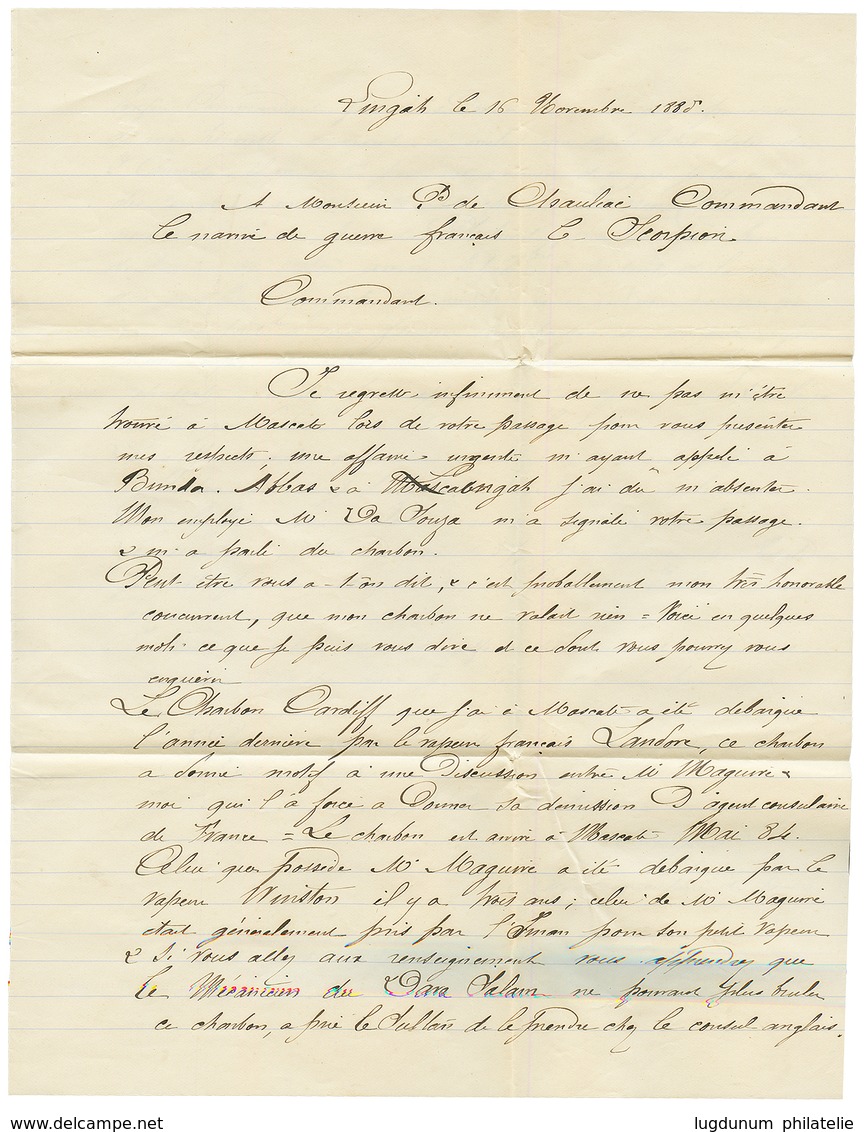 Lingah le 16 Novembre 1885.
A Monsieur P. de Chauliac Commandant
le navire de guerre français le Scorpion
Commandant.
Je regrette infiniment de ne pas m'être
trouvé à Mascate lors de votre passage pour vous présenter
mes respects. une affaire urgente m'ayant appelé à
Bunder. Abbas & à Lingah j'ai dû m'absenter.
Mon employé Mr Da Souza m'a signalé votre passage.
& m'a parlé du charbon.
Peut être vous a-t-on dit, & c'est probablement mon très honorable
concurrent, que mon charbon ne valait rien = Voici en quelques
mots ce que je puis vous dire et ce dont vous pourrez vous
enquérir
Le Charbon Cardiff que j'ai à Mascate a été debarqué
l'année dernière par le vapeur français Landore, ce charbon
a donné motif à une Discussion entre Mr Maguire &
moi qui l'a forcé a Donner sa démission D'agent consulaire
de France = Le charbon est arrivé à Mascate Mai 84.
Celui que possède Mr Maguire a été debarqué par le
vapeur Winston il y a trois ans; celui de Mr Maguire
etait généralement pris par l'Iman pour son petit vapeur
& si vous allez aux renseignements vous apprendrez que
le Mécanicien du Dara Salam ne pouvant plus bruler
ce charbon, a prié le Sultan de le prendre chez le consul anglais.
lugdunum philatelie